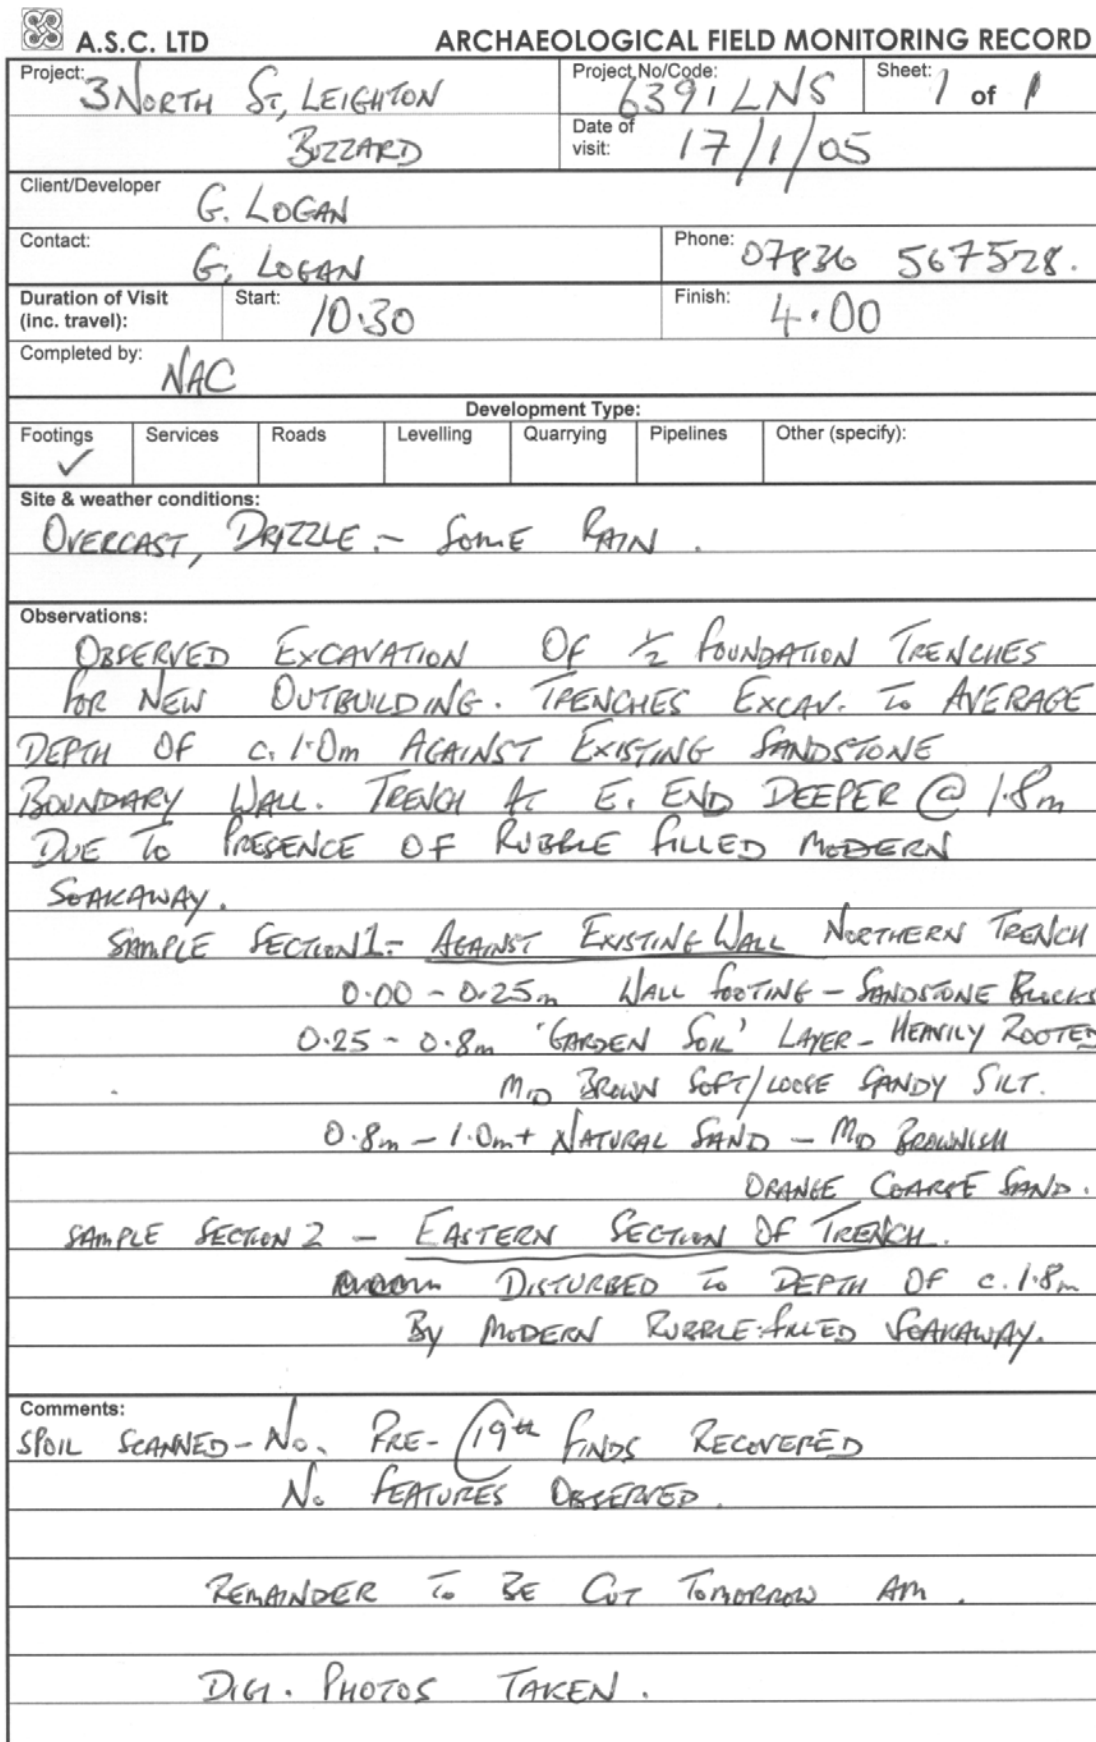 A.S.C. LTD ARCHAEOLOGICAL FIELD MONITORING RECORD
Project: 3 NORTH ST, LEIGHTON
BUZZARD
Project No/Code: 6391 LNS
Sheet: 1 of 1
Date of visit: 17/1/05
Client/Developer G. LOGAN
Contact: G. LOGAN
Phone: 07836 567528.
Duration of Visit
(inc. travel):
Start: 10.30
Finish: 4.00
Completed by: NAC
Development Type:
Footings ✓ Services Roads Levelling Quarrying Pipelines Other (specify):
Site & weather conditions:
OVERCAST, DRIZZLE - SOME RAIN.
Observations:
OBSERVED EXCAVATION OF 1/2 FOUNDATION TRENCHES
FOR NEW OUTBUILDING. TRENCHES EXCAV. TO AVERAGE
DEPTH OF c. 1.0m AGAINST EXISTING SANDSTONE
BOUNDARY WALL. TRENCH AT E. END DEEPER @ 1.8m
DUE TO PRESENCE OF RUBBLE FILLED MODERN
SOAKAWAY.
SAMPLE SECTION 1 - AGAINST EXISTING WALL NORTHERN TRENCH
0.00 - 0.25m WALL FOOTING - SANDSTONE BLOCKS
0.25 - 0.8m 'GARDEN SOIL' LAYER - HEAVILY ROOTED
MID BROWN SOFT/LOOSE SANDY SILT.
0.8m - 1.0m+ NATURAL SAND - MID BROWNISH
ORANGE COARSE SAND.
SAMPLE SECTION 2 - EASTERN SECTION OF TRENCH.
DISTURBED TO DEPTH OF c. 1.8m
BY MODERN RUBBLE-FILLED SOAKAWAY.
Comments:
SPOIL SCANNED - No. PRE-C19th FINDS RECOVERED
No FEATURES OBSERVED.
REMAINDER TO BE CUT TOMORROW AM.
DIGI. PHOTOS TAKEN.